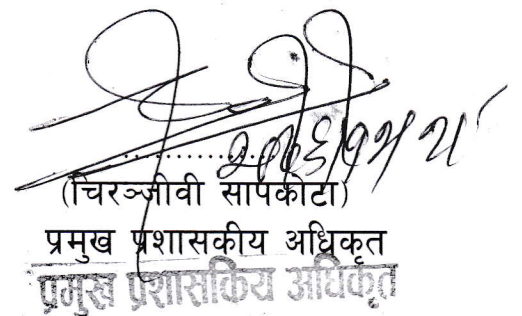 (चिरञ्जीवी सापकोटा)
प्रमुख प्रशासकीय अधिकृत
प्रमुख प्रशासकिय अधिकृत